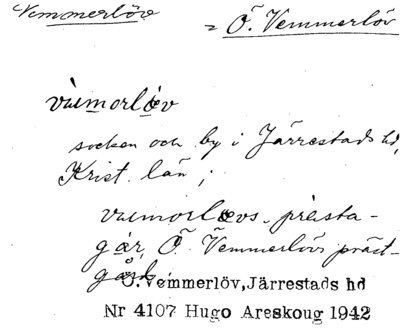 Vemmerlöv = Ö. Vemmerlöv
væmorløv
socken och by i Järrestads hd,
Krist. län;
væmorløvs-prästa-
gár, Ö. Vemmerlövs präst-
gård
Ö. Vemmerlöv, Järrestads hd
Nr 4107 Hugo Areskoug 1942